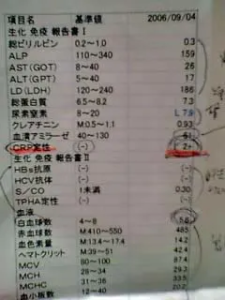 項目名 基準値 2006/09/04
生化 免疫 報告書Ⅰ
総ビリルビン 0.2~1.0 0.3
ALP 110~340 159
AST(GOT) 8~40 26
ALT(GPT) 5~40 17
LD(LDH) 120~240 186
総蛋白質 6.5~8.2 7.3
尿素窒素 8~20 L 7.9
クレアチニン M:0.5~1.1 0.93
血清アミラーゼ 40~130 51
CRP定性 (-) 2+
生化 免疫 報告書Ⅱ
HBs抗原 (-) (-)
HCV抗体 (-) (-)
S/CO 1未満 0.30
TPHA定性 (-) (-)
血液
白血球数 4~8
赤血球数 M:410~550 485
血色素量 M:13.4~17.4 14.2
ヘマトクリット M:39~51 42.4
MCV 80~100 87.4
MCH 29.3
MCHC 33.5
血小板数 12~40 20.2